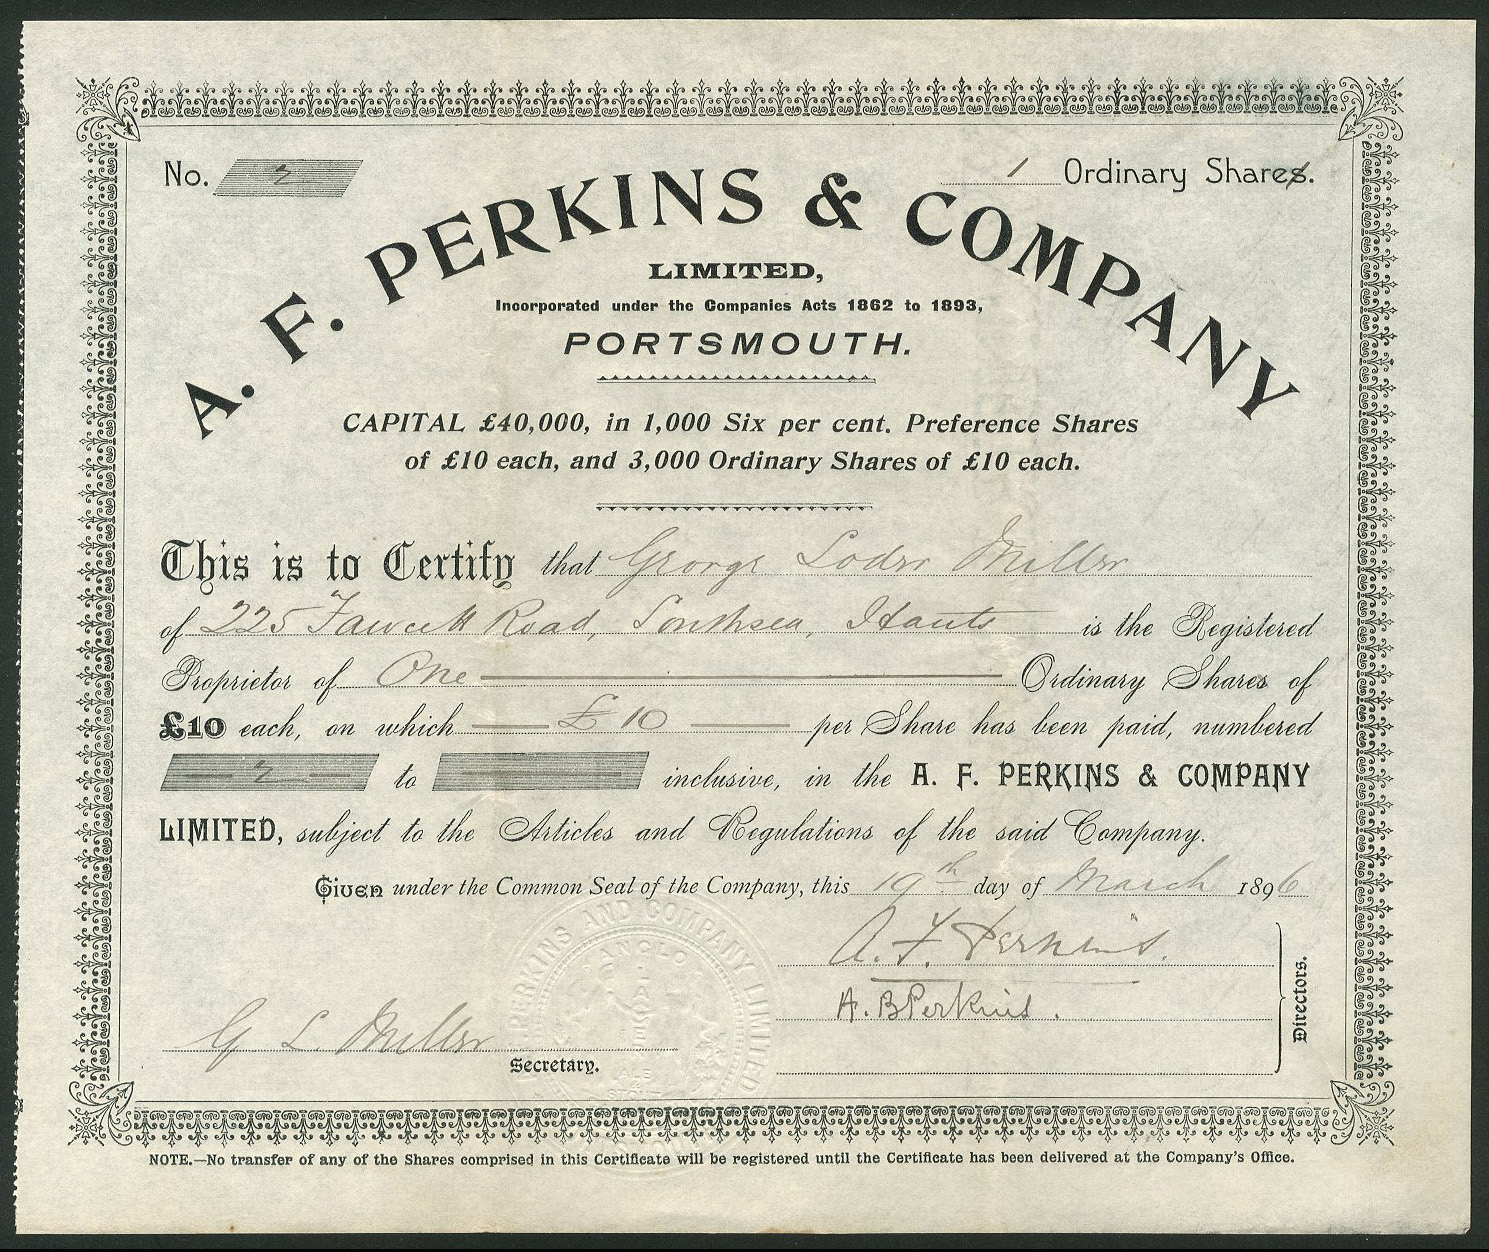 No. 2
1 Ordinary Shares.
A. F. PERKINS & COMPANY
LIMITED,
Incorporated under the Companies Acts 1862 to 1893,
PORTSMOUTH.
CAPITAL £40,000, in 1,000 Six per cent. Preference Shares
of £10 each, and 3,000 Ordinary Shares of £10 each.
This is to Certify that George Loder Miller
of 225 Fawcett Road, Southsea, Hants is the Registered
Proprietor of One Ordinary Shares of
£10 each, on which £10 per Share has been paid, numbered
2 to inclusive, in the A. F. PERKINS & COMPANY
LIMITED, subject to the Articles and Regulations of the said Company.
Given under the Common Seal of the Company, this 19th day of March 1896
A. F. Perkins.
A. B Perkins.
Directors.
G L. Miller
Secretary.
PERKINS AND COMPANY LIMITED
NOTE.—No transfer of any of the Shares comprised in this Certificate will be registered until the Certificate has been delivered at the Company's Office.